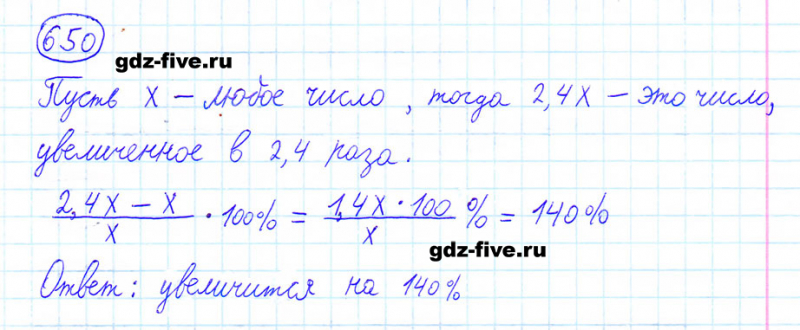 650
gdz-five.ru
Пусть х – любое число, тогда 2,4х – это число,
увеличенное в 2,4 раза.
(2,4х – х)/х · 100% = (1,4х · 100)/х % = 140%
gdz-five.ru
Ответ: увеличится на 140%